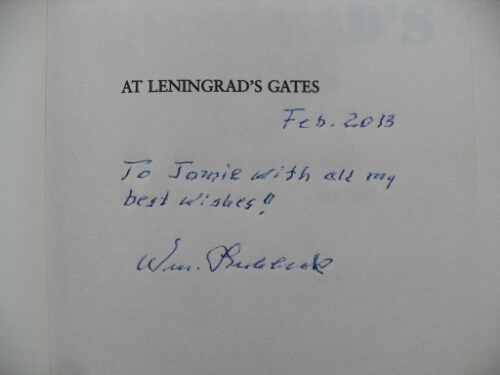 AT LENINGRAD'S GATES
Feb. 2013
To Jamie with all my
best wishes!!
Wm. Lubbeck